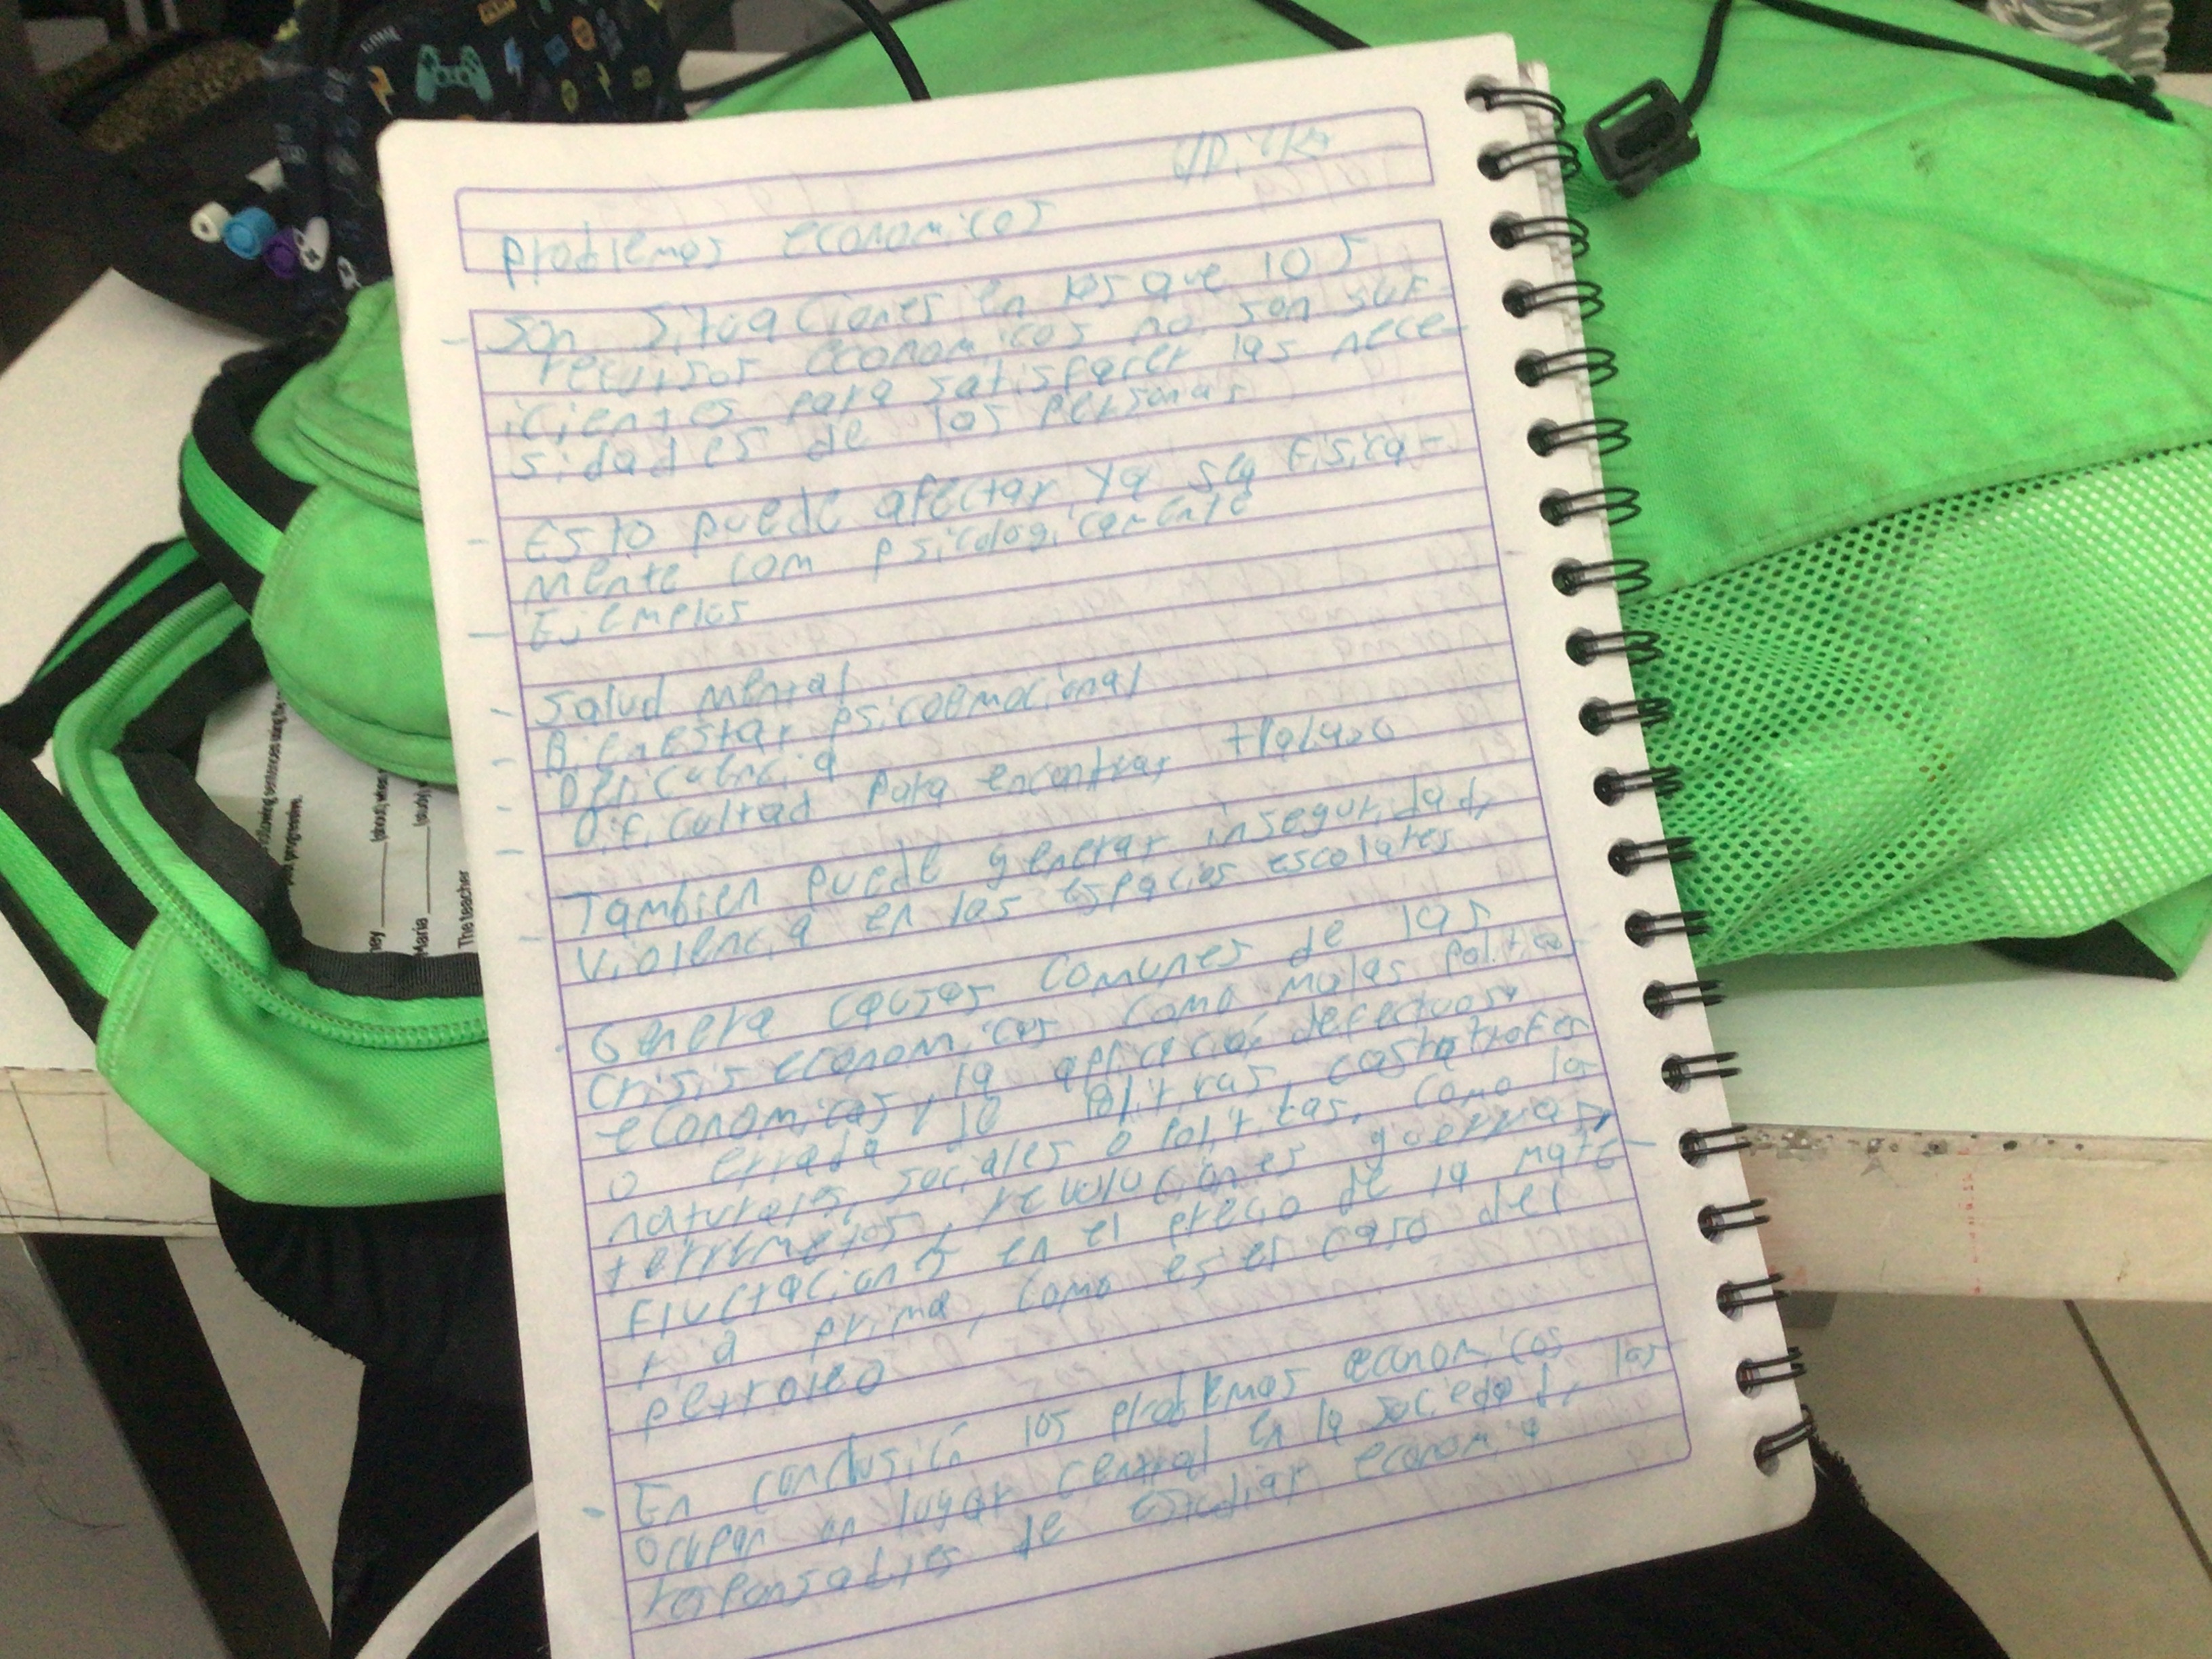 problemas economicos
- Son Situaciones en los que los
recursos economicos no son suf
icientes para satisfacer las nece-
sidades de los personas
- Esto puede afectar ya sea Fisica-
mente com psicologicamente
- Ejemplos
- Salud mental
- Bienestar psicoemocional
- Delicuencia
- Dificultad para encontrar
También puede generar inseguridad,
- violencia en los espacios escolares
Genera causas comunes de las
crisis economicas como malas politicas
economicas, la defectuosa
o errada de politicas,
naturales, sociales o politicas, como los
terremotos, revoluciones guerras,
Fluctacions en el precio de la mate-
ria prima, como es el caso del
petroleo
- En conclusión los problemas economicos
ocupan un lugar central en la sociedad, las
responsables de estudiar economia
following sentences using the
past progressive.
ney ____ (shout) when
Maria ____ (study) w
The teacher